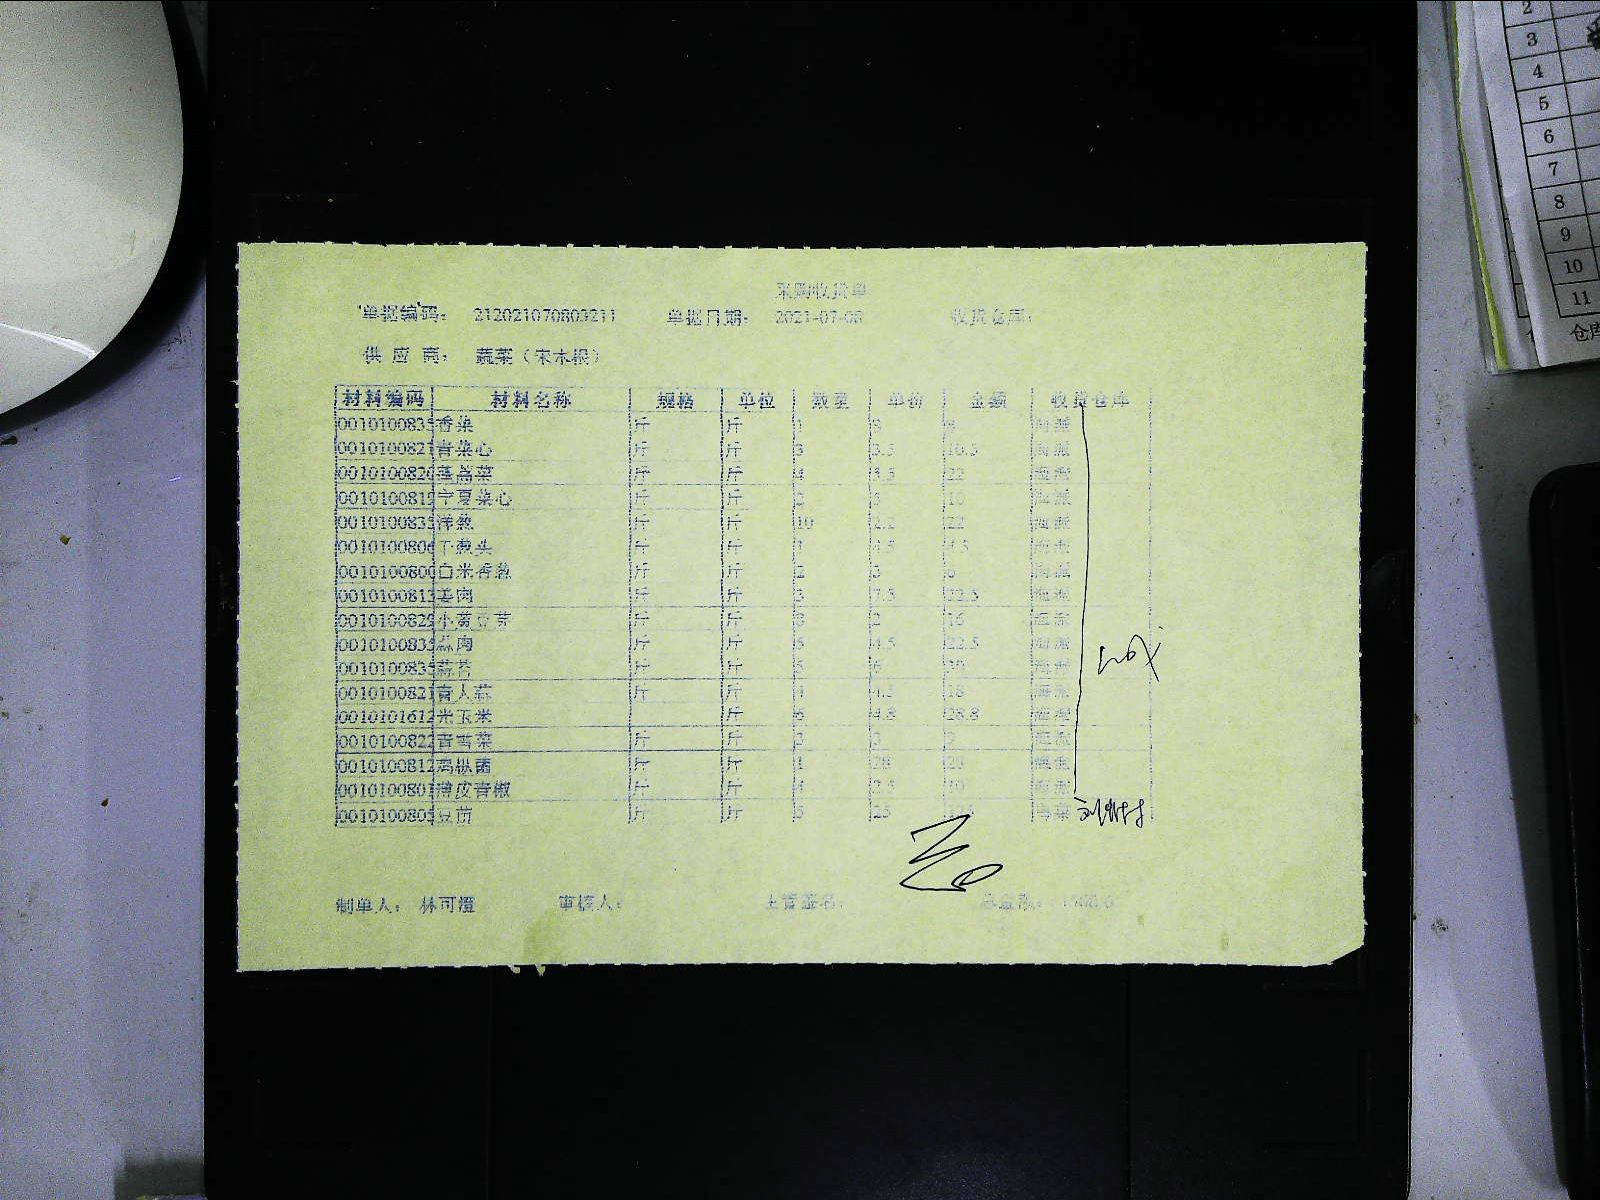 采购收货单
单据编码： 212021070803211 单据日期： 2021-07-08 收货仓库：
供 应 商： 蔬菜（宋木根）
材料编码 材料名称 规格 单位 数量 单价 金额 收货仓库
001010083 香菜 斤 斤 1 8 8 海派
001010082 青菜心 斤 斤 3 3.5 10.5 海派
001010082 蓬蒿菜 斤 斤 4 5.5 22 海派
001010081 宁夏菜心 斤 斤 2 5 10 海派
001010083 洋葱 斤 斤 10 2.2 22 海派
001010080 干葱头 斤 斤 1 4.5 4.5 海派
001010080 白米香葱 斤 斤 2 3 6 海派
001010081 姜肉 斤 斤 3 7.5 22.5 海派
001010082 小黄豆芽 斤 斤 8 2 16 海派
001010083 蒜肉 斤 斤 5 4.5 22.5 海派
001010083 蒜苔 斤 斤 5 6 30 海派
001010082 青大蒜 斤 斤 4 4.5 18 海派
001010161 米玉米 斤 6 4.8 28.8 海派
001010082 斤 斤 3 3 9 海派
001010081 鸡枞菌 斤 斤 1 28 28 海派
001010080 薄皮青椒 斤 斤 4 2.5 10 海派
001010080 豆苗 斤 斤 5 25 125 粤菜
制单人： 林可澄 审核人： 主管签名： 总金额：
2
3
4
5
6
7
8
9
10
11
仓库